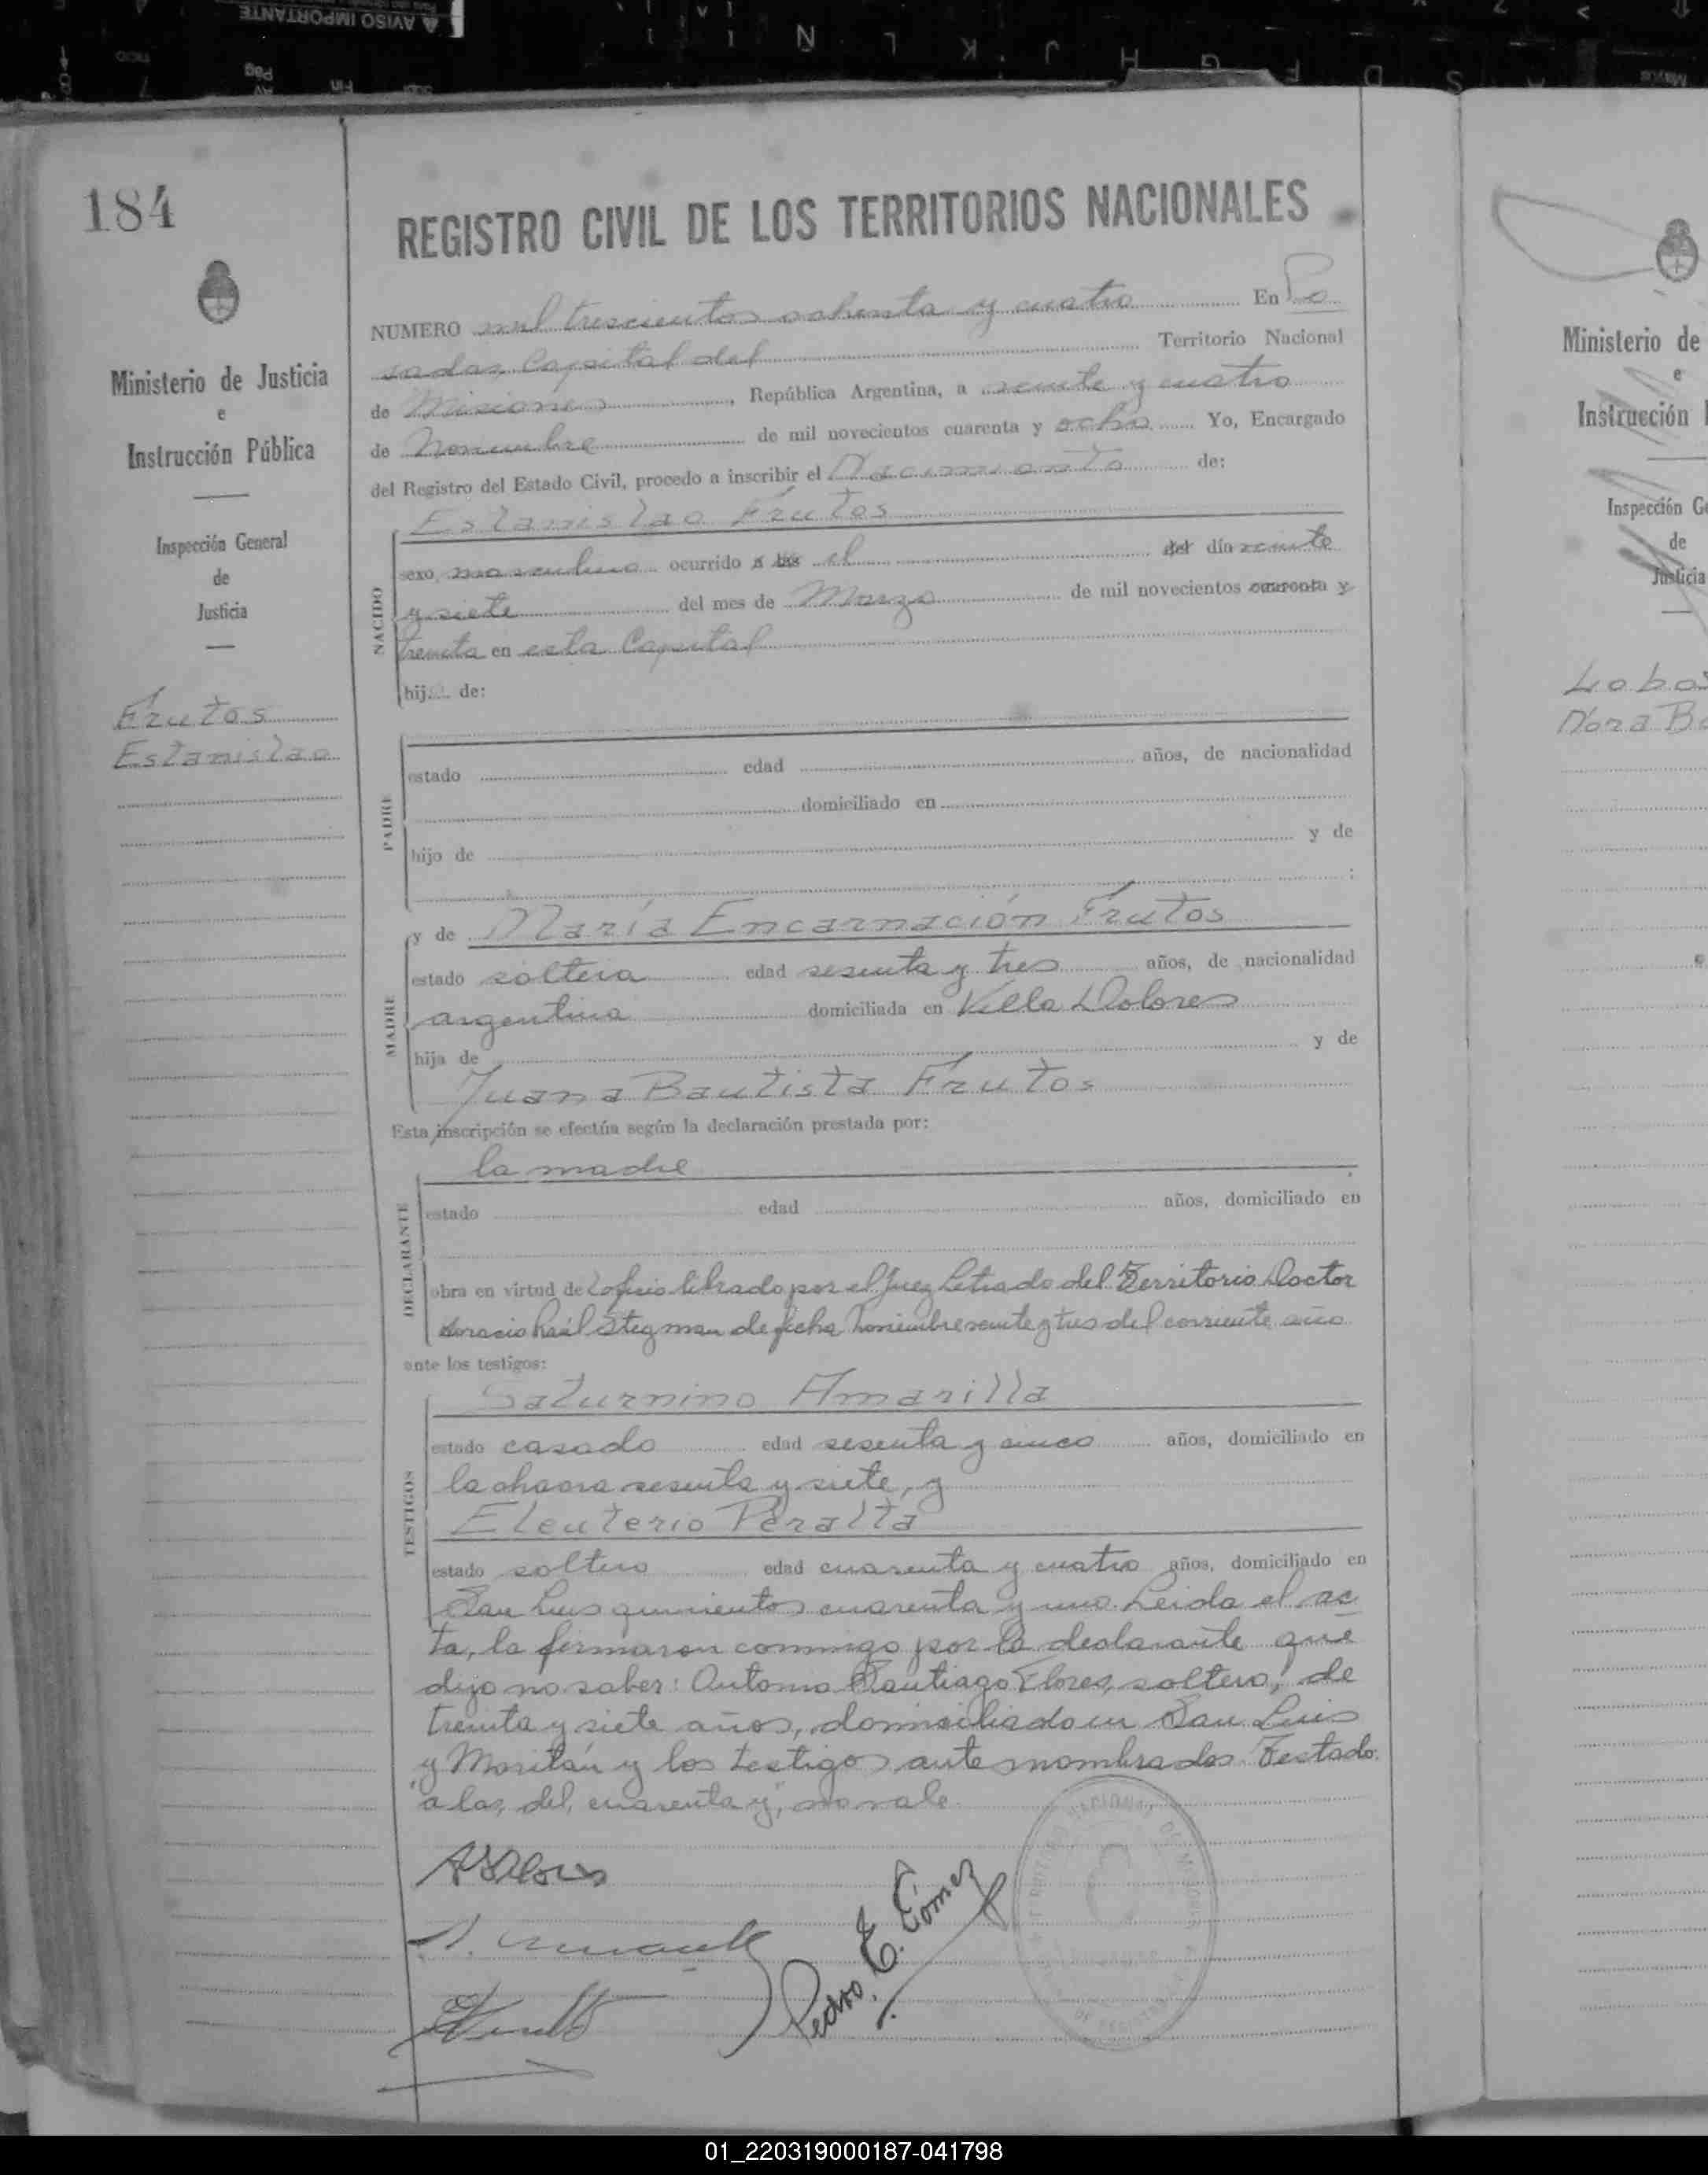 AVISO IMPORTANTE
184
REGISTRO CIVIL DE LOS TERRITORIOS NACIONALES
NUMERO mil trescientos ochenta y cuatro En Po
sadas, Capital del Territorio Nacional
de Misiones, República Argentina, a veinte y cuatro
de Noviembre de mil novecientos cuarenta y ocho Yo, Encargado
del Registro del Estado Civil, procedo a inscribir el Nacimiento de:
Estanislao Frutos
NACIDO
sexo, masculino ocurrido a las el del día veinte
y siete del mes de Marzo de mil novecientos cuarenta y
treinta en esta Capital
hij.... de:
Ministerio de Justicia
e
Instrucción Pública
Inspección General
de
Justicia
Frutos
Estanislao
PADRE
estado edad años, de nacionalidad
domiciliado en
hijo de y de
;
y de María Encarnación Frutos
MADRE
estado soltera edad sesenta y tres años, de nacionalidad
argentina domiciliada en Villa Dolores
hija de y de
Juana Bautista Frutos
Esta inscripción se efectúa según la declaración prestada por:
la madre
DECLARANTE
estado edad años, domiciliado en
obra en virtud de oficio librado por el Juez Letrado del Territorio Doctor
Horacio Raúl Stegman de fecha Noviembre veinte y tres del corriente año
ante los testigos:
Saturnino Amarilla
TESTIGOS
estado casado edad sesenta y cinco años, domiciliado en
la chacra sesenta y siete, y
Eleuterio Peralta
estado soltero edad cuarenta y cuatro años, domiciliado en
San Luis quinientos cuarenta y uno. Leida el ac
ta, la firmaron conmigo por la declarante que
dijo no saber: Antonio Santiago Flores, soltero, de
treinta y siete años, domiciliado en San Luis
y Moritán y los testigos ante nombrados. Testado:
"a las, del, cuarenta y", no vale.
Pedro E. Gómez
Ministerio de
e
Instrucción
Inspección Ge
de
Justicia
Lobos
Nora B
01_220319000187-041798